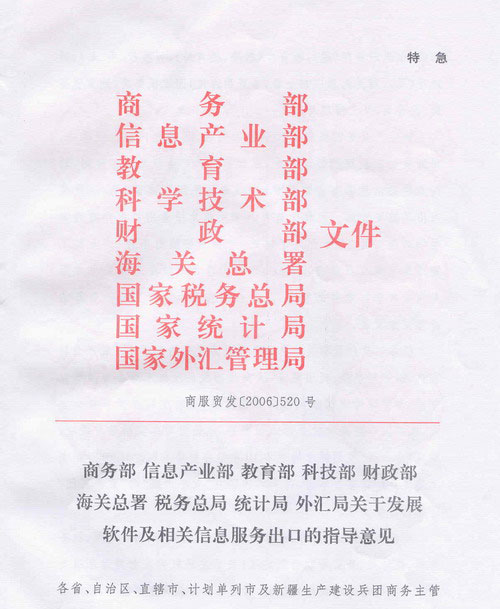 特急
商务部
信息产业部
教育部
科学技术部
财政部 文件
海关总署
国家税务总局
国家统计局
国家外汇管理局
商服贸发〔2006〕520 号
商务部 信息产业部 教育部 科技部 财政部
海关总署 税务总局 统计局 外汇局关于发展
软件及相关信息服务出口的指导意见
各省、自治区、直辖市、计划单列市及新疆生产建设兵团商务主管